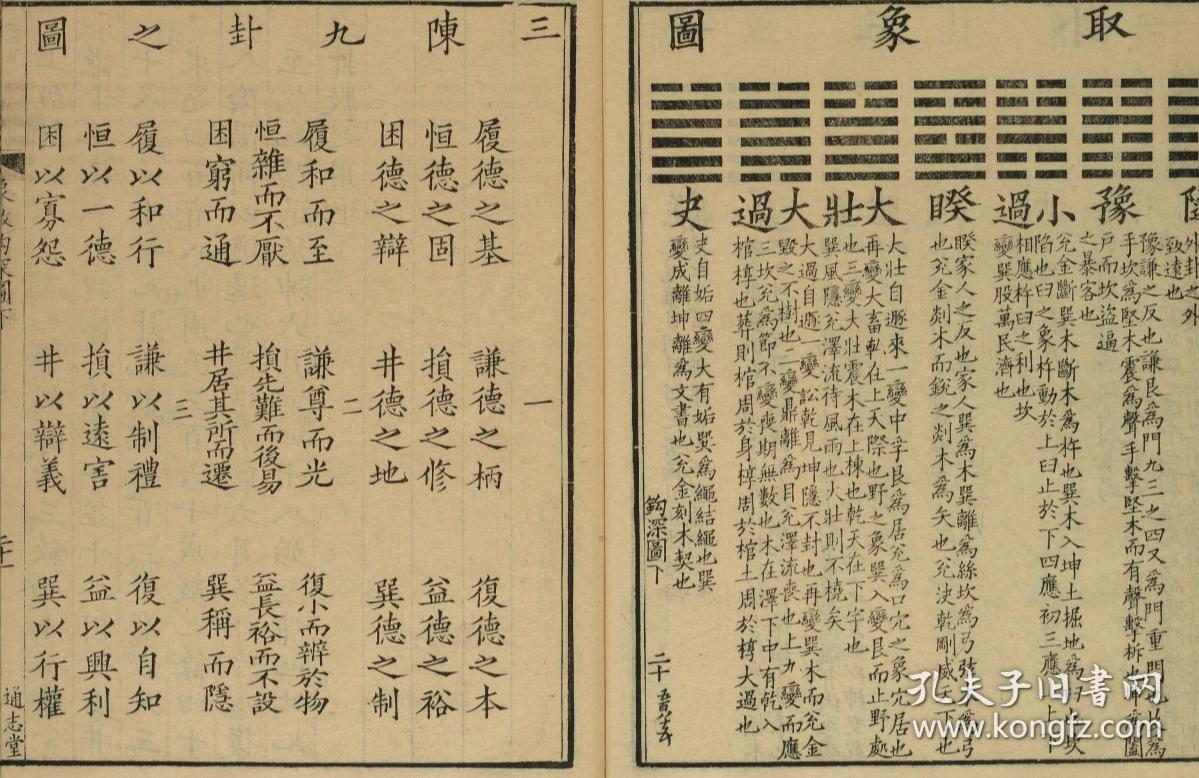 取象圖
外卦之外
致遠也
豫
豫謙之反也謙艮為門九三之四又為門重門也以為
手坎為堅木震為聲手擊堅木而有聲擊柝也
戶而坎盜逼
之暴客也
小過
兊金斷巽木斷木為杵也巽木入坤土掘地為臼坎
陷也臼之象杵動於上臼止於下四應初三應上上下
相應杵臼之利也坎
變巽股萬民濟也
睽
睽家人之反也家人巽為木巽離為絲坎為弓弦木為弓
也兊金剡木而銳之剡木為矢也兊決乾剛威天下也
大壯
大壯自遯來一變中孚艮為居兊為口穴之象穴居也
再變大畜乾在上天際也野之象巽入變艮而止野處
也三變大壯震木在上棟也乾天在下宇也
巽風隱兊澤流待風雨也大壯則不橈矣
大過
大過自遯一變訟乾見坤隱不封也再變巽木而兊金
毀之不樹也二變鼎離為目兊澤流喪也上九變而應
三坎兊為節不變喪期無數也木在澤下中有乾入
棺椁也葬則棺周於身椁周於棺土周於椁大過也
夬
夬自姤四變大有姤巽為繩結繩也巽
變成離坤離為文書也兊金刻木契也
鈎深圖下
二十
三陳九卦之圖
一
履德之基 謙德之柄 復德之本
恒德之固 損德之修 益德之裕
困德之辯 井德之地 巽德之制
二
履和而至 謙尊而光 復小而辨於物
恒雜而不厭 損先難而後易 益長裕而不設
困窮而通 井居其所而遷 巽稱而隱
三
履以和行 謙以制禮 復以自知
恒以一德 損以遠害 益以興利
困以寡怨 井以辯義 巽以行權
通志堂
孔夫子旧书网
www.kongfz.com